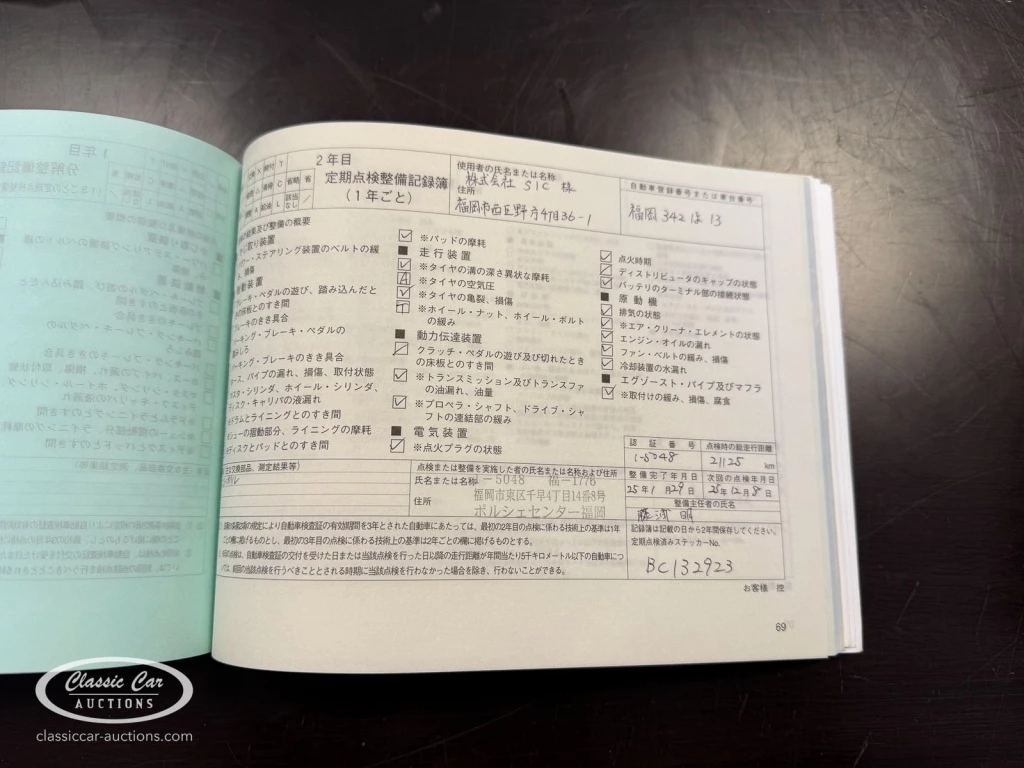 2年目
定期点検整備記録簿
(1年ごと)
使用者の氏名または名称
株式会社 SIC 様
住所
自動車登録番号または車台番号
福岡 342 は 13
及び整備の概要
ステアリング装置のベルトの緩
ブレーキ・ペダルの遊び、踏み込んだと
の床板とのすき間
ブレーキのきき具合
キング・ブレーキ・ペダルの
しろ
ーキング・ブレーキのきき具合
ース、パイプの漏れ、損傷、取付状態
スタ・シリンダ、ホイール・シリンダ、
ディスク・キャリパの液漏れ
ドラムとライニングとのすき間
シューの摺動部分、ライニングの摩耗
ディスクとパッドとのすき間
※パッドの摩耗
■ 走行装置
※タイヤの溝の深さ異状な摩耗
※タイヤの空気圧
※タイヤの亀裂、損傷
※ホイール・ナット、ホイール・ボルト
の緩み
■ 動力伝達装置
クラッチ・ペダルの遊び及び切れたとき
の床板とのすき間
※トランスミッション及びトランスファ
の油漏れ、油量
※プロペラ・シャフト、ドライブ・シャ
フトの連結部の緩み
■ 電気装置
※点火プラグの状態
点火時期
ディストリビュータのキャップの状態
バッテリのターミナル部の接続状態
■ 原動機
排気の状態
※エア・クリーナ・エレメントの状態
エンジン・オイルの漏れ
ファン・ベルトの緩み、損傷
冷却装置の水漏れ
■ エグゾースト・パイプ及びマフラ
※取付けの緩み、損傷、腐食
交換部品、測定結果等)
点検または整備を実施した者の氏名または名称および住所
氏名または名称
1-5048 福-1776
住所
福岡市東区千早4丁目14番8号
ポルシェセンター福岡
認証番号
1-5048
点検時の総走行距離
21125 km
整備完了年月日
25年1月29日
次回の点検年月日
25年12月8日
整備主任者の氏名
記録簿は記載の日から2年間保存してください。
定期点検済みステッカーNo.
BC132923
の規定により自動車検査証の有効期間を3年とされた自動車にあたっては、最初の2年目の点検に係わる技術上の基準は1年
ごとの欄に掲げるものとし、最初の3年目の点検に係わる技術上の基準は2年ごとの欄に掲げるものとする。
の点検は、自動車検査証の交付を受けた日または当該点検を行った日以降の走行距離が年間当たり5千キロメートル以下の自動車につ
いては、前回の当該点検を行うべきこととされる時期に当該点検を行わなかった場合を除き、行わないことができる。
お客様 控
69
Classic Car
AUCTIONS
classiccar-auctions.com